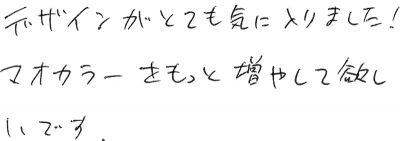 デザインがとても気に入りました!
マオカラーをもっと増やして欲し
いです.